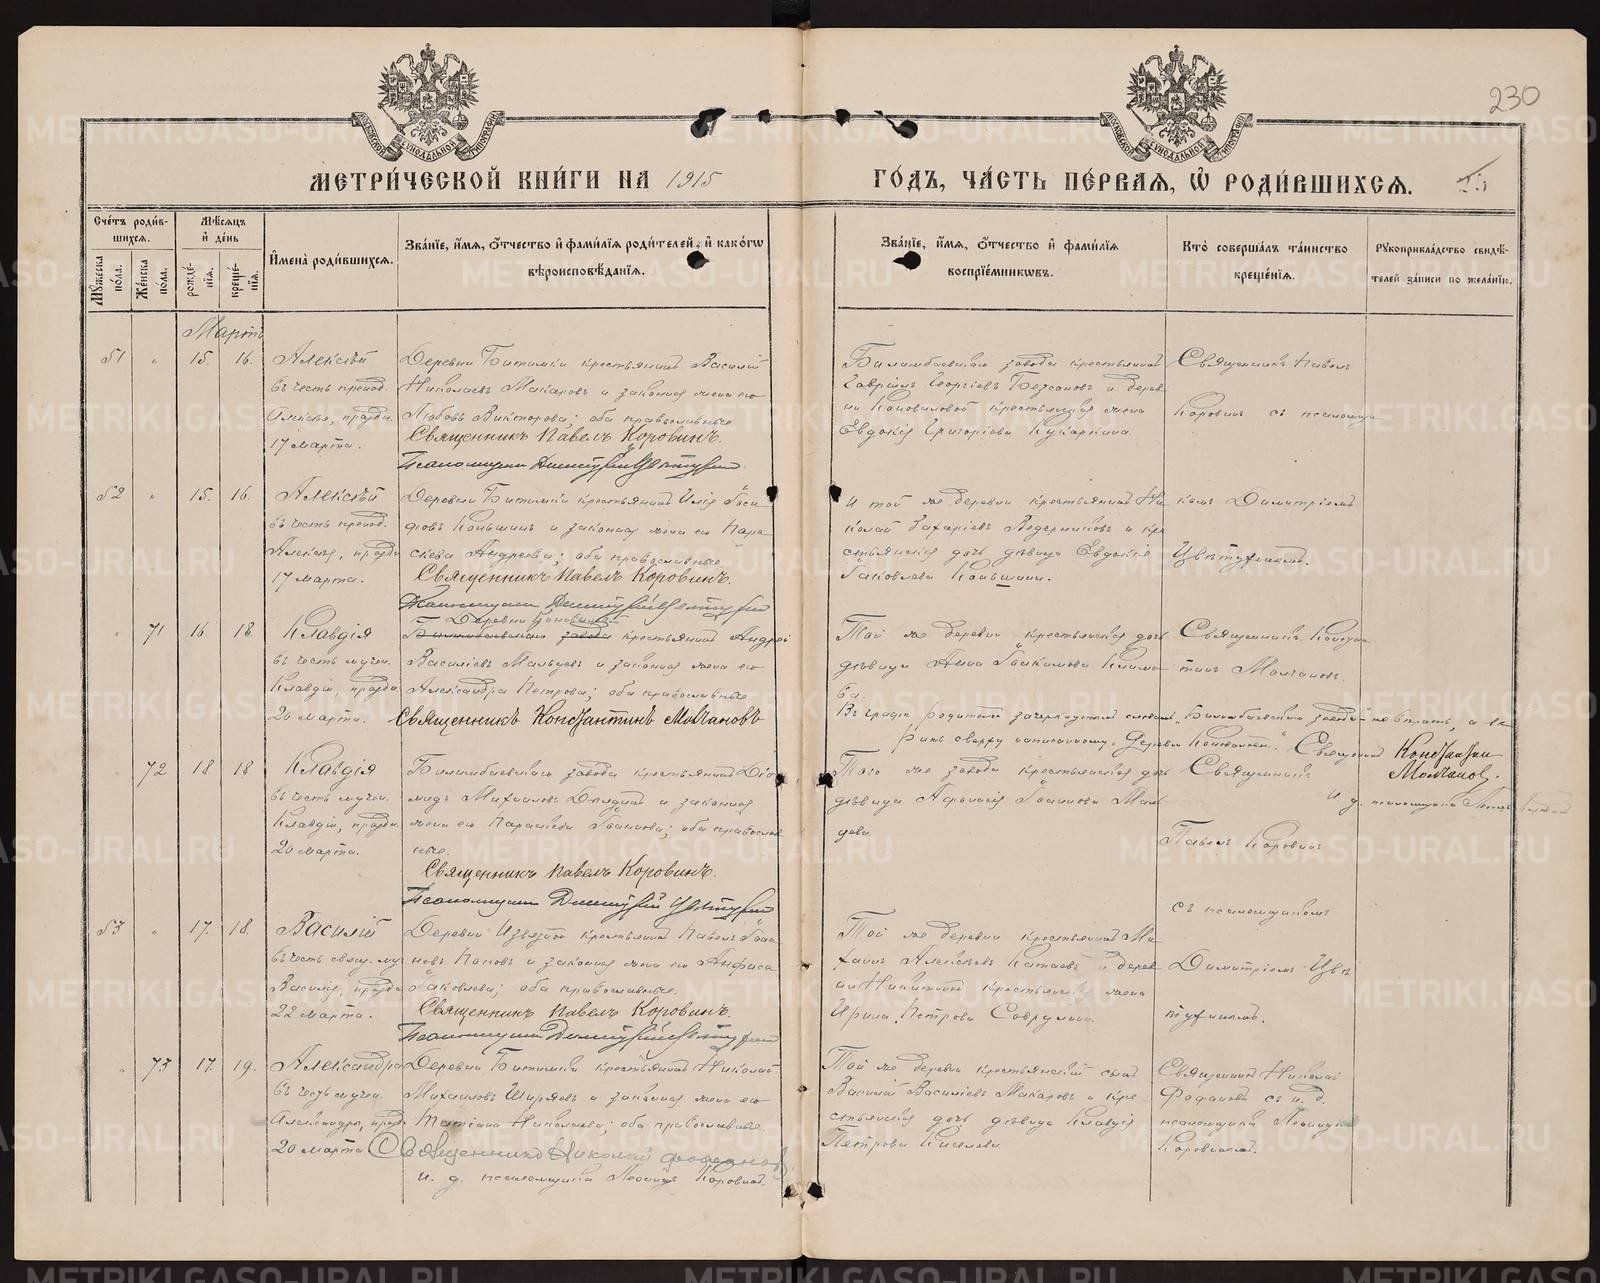 230
МОСКОВСКОЙ СѴНОДАЛЬНОЙ ТИПОГРАФІИ
МОСКОВСКОЙ СѴНОДАЛЬНОЙ ТИПОГРАФІИ
МЕТРИ́ЧЕСКОЙ КНИ́ГИ НА 1915
ГО́ДЪ, ЧА́СТЬ ПЕ́РВАѦ, Ѽ РОДИ́ВШИХСѦ.
Сче́тъ роди́в-
шихсѧ.
Мꙋ́жеска по́ла.
Же́нска по́ла.
Мѣ́сѧцъ
и҆ де́нь
рожде́-
нїѧ.
креще́-
нїѧ.
И҆мена̀ роди́вшихсѧ.
Зва́нїе, и҆́мѧ, ѻ҆́тчество и҆ фами́лїѧ роди́телей, и҆ како́гѡ
вѣроисповѣ́данїѧ.
Зва́нїе, и҆́мѧ, ѻ҆́тчество и҆ фами́лїѧ
воспрїе́мникѡвъ.
Кто̀ соверша́лъ та́инство
креще́нїѧ.
Рꙋкоприкла́дство свидѣ́-
телей за́писи по жела́нїю.
Мартъ
51 " 15. 16. Алексѣй
въ честь препод.
Алексѣя, праздн.
17 марта.
Деревни Битимки крестьянинъ Василій
Николаевъ Макаровъ и законная жена его
Любовь Викторова; оба православные
Священникъ Павелъ Коровинъ.
Псаломщикъ Димитрій Цвѣтухинъ
Билимбаевскаго завода крестьянинъ
Гавріилъ Георгіевъ Безсоновъ и дерев
ни Коноваловой крестьянская жена
Евдокія Григоріева Кукаркина.
Священникъ Павелъ
Коровинъ съ псаломщи
52 " 15. 16. Алексѣй
въ честь препод.
Алексѣя, праздн
17 марта.
Деревни Битимки крестьянинъ Илія
Коньшинъ и законная жена его Пара
скева Андреева; оба православные
Священникъ Павелъ Коровинъ.
Псаломщикъ Димитрій Цвѣтухинъ
и той же деревни крестьянинъ Ни
колай Захаріевъ Ведерниковъ и кре
стьянская дочь дѣвица Евдокія
Іаковлева Коньшина.
комъ Димитріемъ
Цвѣтухинымъ.
" 71 16. 18. Клавдія
въ честь мучен.
Клавдіи, праздн.
20 марта.
Деревни Коноваловой
Билимбаевскаго завода крестьянинъ Андрей
Василіевъ Мальцевъ и законная жена его
Александра Петрова; оба православные
Священникъ Константинъ Молчановъ
Той же деревни крестьянская дочь
дѣвица Анна Іоакимова Климо
ва.
Священникъ Констан
тинъ Молчановъ.
Въ графѣ родителей зачеркнутыя слова „Билимбаевскаго завода" не
Священникъ Константинъ
Молчановъ.
72 18 18 Клавдія
въ честь мучен.
Клавдіи, праздн.
20 марта.
Билимбаевскаго завода крестьянинъ Діо
мидъ Михаиловъ и законная
жена его Параскева Іоаннова; оба православ
ные.
Священникъ Павелъ Коровинъ.
Псаломщикъ Димитрій Цвѣтухинъ
Того же завода крестьянская дочь
дѣвица Афанасія Іоаннова
Священникъ
Павелъ Коровинъ
И д. псаломщика
53 " 17. 18. Василій
въ честь свящ. му
Василія, праздн
22 марта.
Деревни Извездной крестьянинъ Павелъ Іоан
новъ Поповъ и законная жена его Анфиса
Іаковлева; оба православные.
Священникъ Павелъ Коровинъ.
Псаломщикъ Димитрій Цвѣтухинъ
Той же деревни крестьянинъ Ми
хаилъ Алексѣевъ Катаевъ и дерев
ни Никитиной крестьянская жена
Ирина Петрова
съ псаломщикомъ
Димитріемъ Цвѣ
тухинымъ.
" 73 17. 19. Александра
въ честь мучен.
Александры, празд
20 марта
Деревни Битимки крестьянинъ Николай
Михаиловъ Ширяевъ и законная жена его
Татіана Николаева; оба православные.
Священникъ Николай
и. д. псаломщика Леонидъ Коровинъ.
Той же деревни крестьянскій сынъ
Василій Василіевъ Макаровъ и кре
стьянская дочь дѣвица Клавдія
Петрова Киселева
Священникъ Николай
съ и. д.
псаломщика Леонидомъ
Коровинымъ.
METRIKI.GASO-URAL.RU